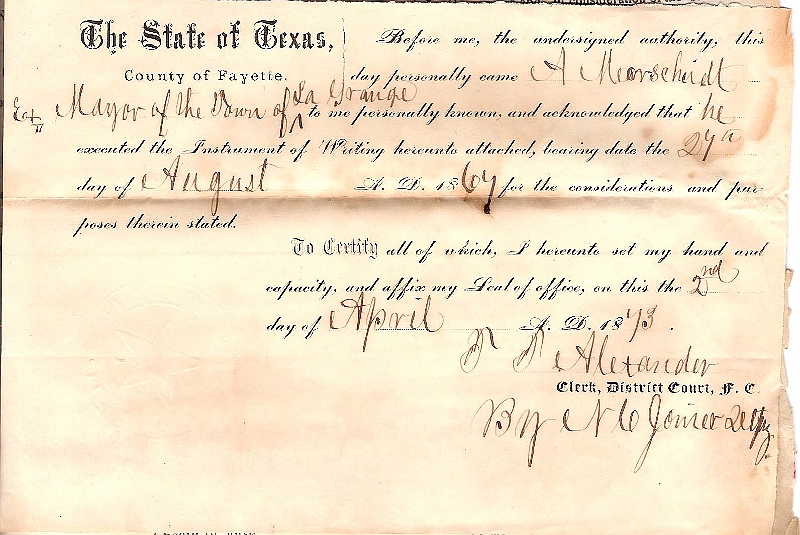 The State of Texas,
County of Fayette.
Before me, the undersigned authority, this
day personally came A Meerscheidt
Mayor of the Town of La Grange to me personally known, and acknowledged that he
executed the Instrument of Writing hereunto attached, bearing date the 27th
day of August A. D. 1867 for the considerations and pur
poses therein stated.
To Certify all of which, I hereunto set my hand and
capacity, and affix my Seal of office, on this the 2nd
day of April A. D. 1873.
Alexander
Clerk, District Court, F. C.
By N C Joiner Depty